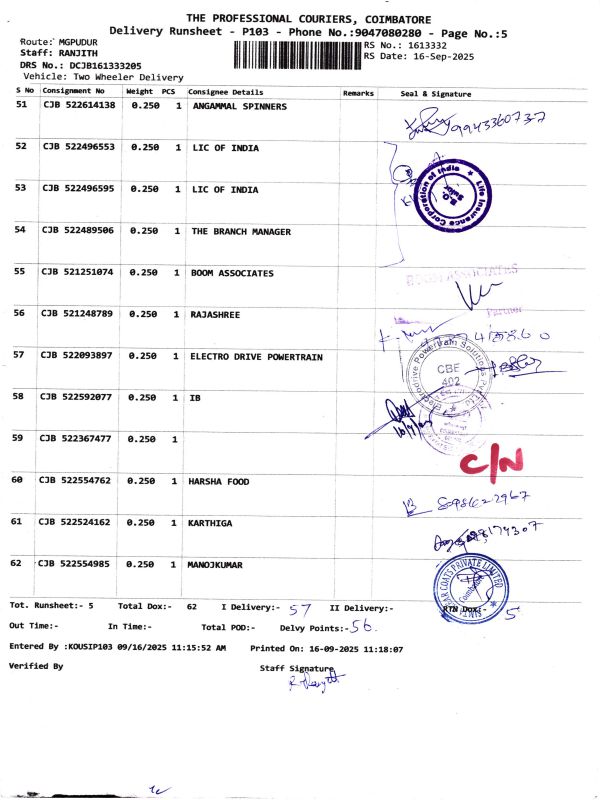 THE PROFESSIONAL COURIERS, COIMBATORE
Delivery Runsheet - P103 - Phone No.:9047080280 - Page No.:5
Route: MGPUDUR
RS No.: 1613332
Staff: RANJITH
RS Date: 16-Sep-2025
DRS No.: DCJB161333205
Vehicle: Two Wheeler Delivery
S No Consignment No Weight PCS Consignee Details Remarks Seal & Signature
51 CJB 522614138 0.250 1 ANGAMMAL SPINNERS
9943360737
52 CJB 522496553 0.250 1 LIC OF INDIA
Life Insurance Corporation of India
53 CJB 522496595 0.250 1 LIC OF INDIA
54 CJB 522489506 0.250 1 THE BRANCH MANAGER
55 CJB 521251074 0.250 1 BOOM ASSOCIATES
BOOM ASSOCIATES
Partner
56 CJB 521248789 0.250 1 RAJASHREE
57 CJB 522093897 0.250 1 ELECTRO DRIVE POWERTRAIN
Electrodrive Powertrain Solutions Pvt Ltd
CBE
402
58 CJB 522592077 0.250 1 IB
59 CJB 522367477 0.250 1
C/N
60 CJB 522554762 0.250 1 HARSHA FOOD
61 CJB 522524162 0.250 1 KARTHIGA
62 CJB 522554985 0.250 1 MANOJKUMAR
COATS PRIVATE LIMITED
Tot. Runsheet:- 5 Total Dox:- 62 I Delivery:- 57 II Delivery:- RTN Dox:- 5
Out Time:- In Time:- Total POD:- Delvy Points:- 56
Entered By :KOUSIP103 09/16/2025 11:15:52 AM Printed On: 16-09-2025 11:18:07
Verified By Staff Signature